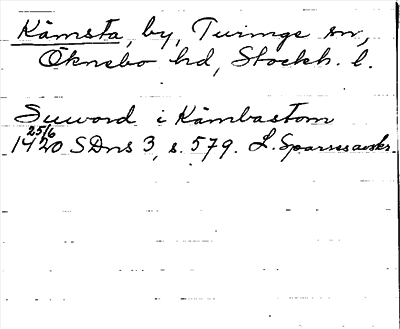 Kämsta, by, Turinge sn,
Öknebo hd, Stockh. l.
Suword i Kämbastom
25/6
1420 SDns 3, s. 579. L. Sparrsavskr.